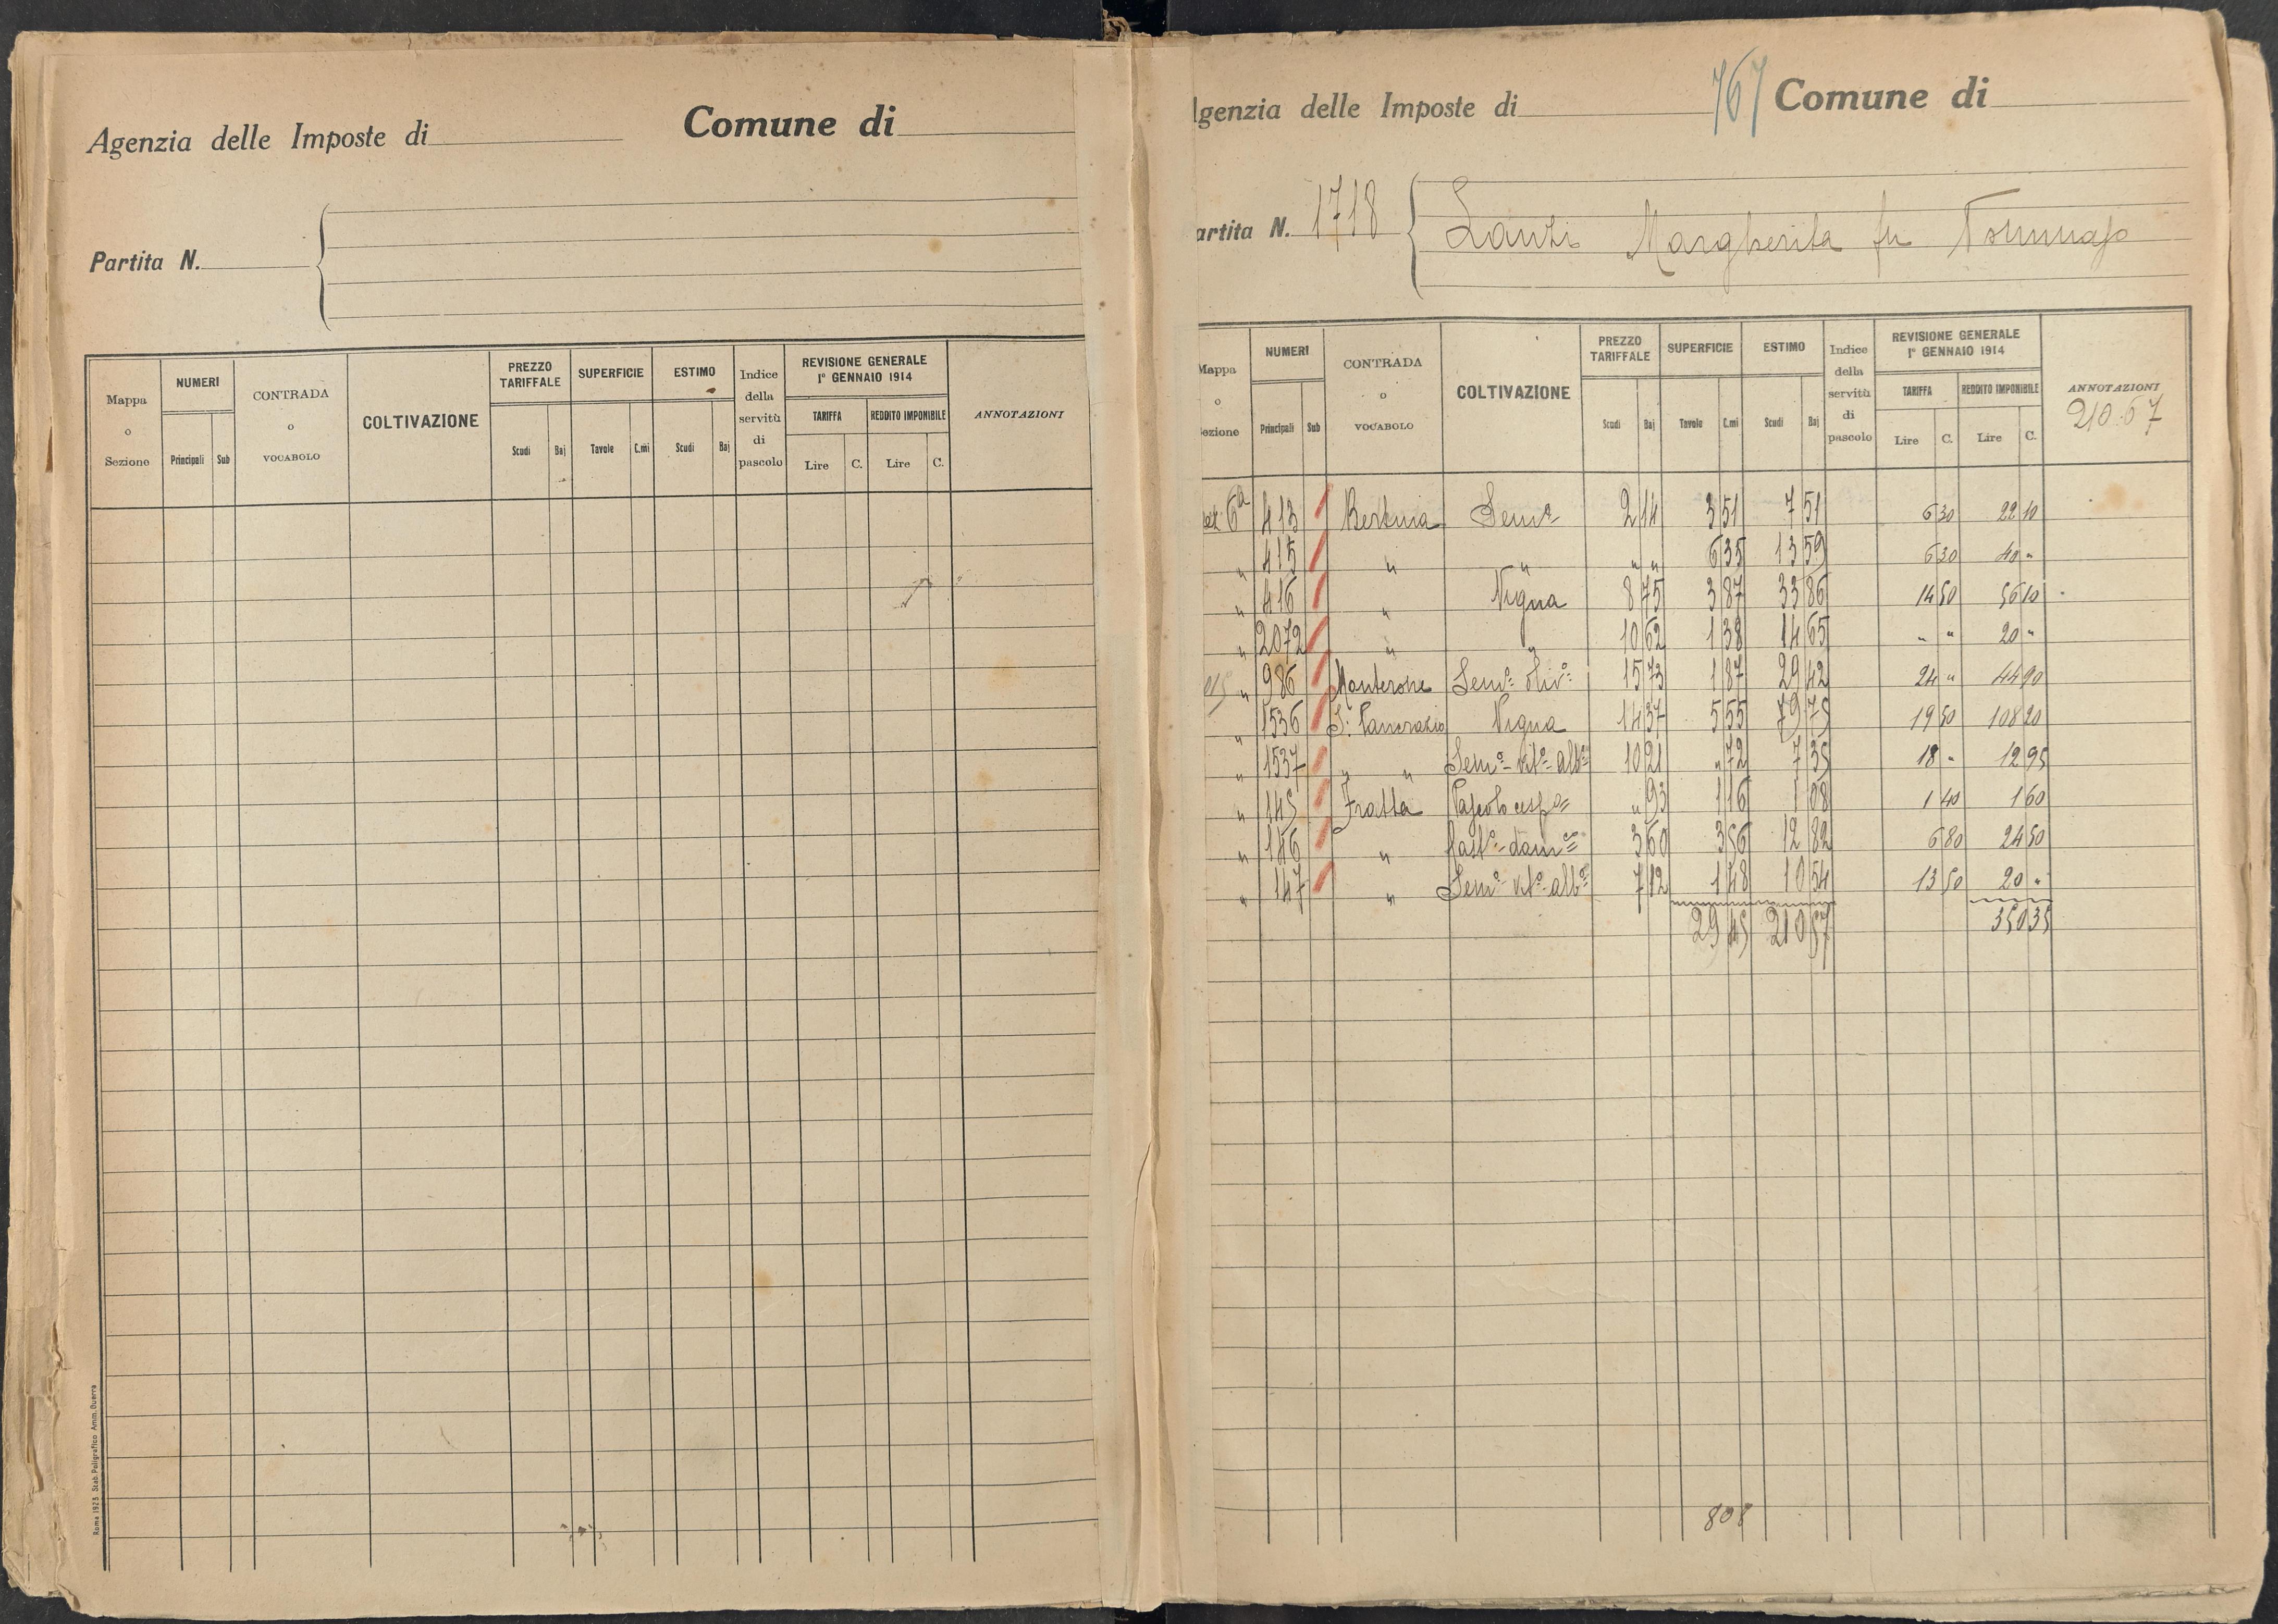 Agenzia delle Imposte di Comune di
Partita N.
Mappa o Sezione NUMERI Principali Sub CONTRADA o VOCABOLO COLTIVAZIONE PREZZO TARIFFALE Scudi Baj SUPERFICIE Tavole C.mi ESTIMO Scudi Baj Indice della servitù di pascolo REVISIONE GENERALE 1° GENNAIO 1914 TARIFFA Lire C. REDDITO IMPONIBILE Lire C. ANNOTAZIONI
Roma 1923. Stab. Poligrafico Amm. Guerra
767
genzia delle Imposte di Comune di
artita N. 1718 Lanzi Margherita fu Tommaso
Mappa o ezione NUMERI Principali Sub CONTRADA o VOCABOLO COLTIVAZIONE PREZZO TARIFFALE Scudi Baj SUPERFICIE Tavole C.mi ESTIMO Scudi Baj Indice della servitù di pascolo REVISIONE GENERALE 1° GENNAIO 1914 TARIFFA Lire C. REDDITO IMPONIBILE Lire C. ANNOTAZIONI
210.67
6ª 413 Semº 2 14 3 51 7 51 6 30 22 10
" 415 " " " " 6 35 13 59 6 30 40 "
" 416 " Vigna 8 75 3 87 33 86 14 50 56 10
" 2072 " " 10 62 1 38 14 65 " " 20 "
" 986 Monterone Semº olivº 15 73 1 87 29 42 24 " 44 90
" 1536 S. Pancrazio Vigna 14 37 5 55 79 75 19 50 108 20
" 1537 " " Semº vitº albº 10 21 " 72 7 35 18 " 12 95
" 145 Fratta Pascolo cespº " 93 1 16 1 08 1 40 1 60
" 146 " 3 60 3 56 12 82 6 80 24 50
" 147 " Semº vitº albº 7 12 1 48 10 54 13 50 20 "
29 45 210 57 350 35
808